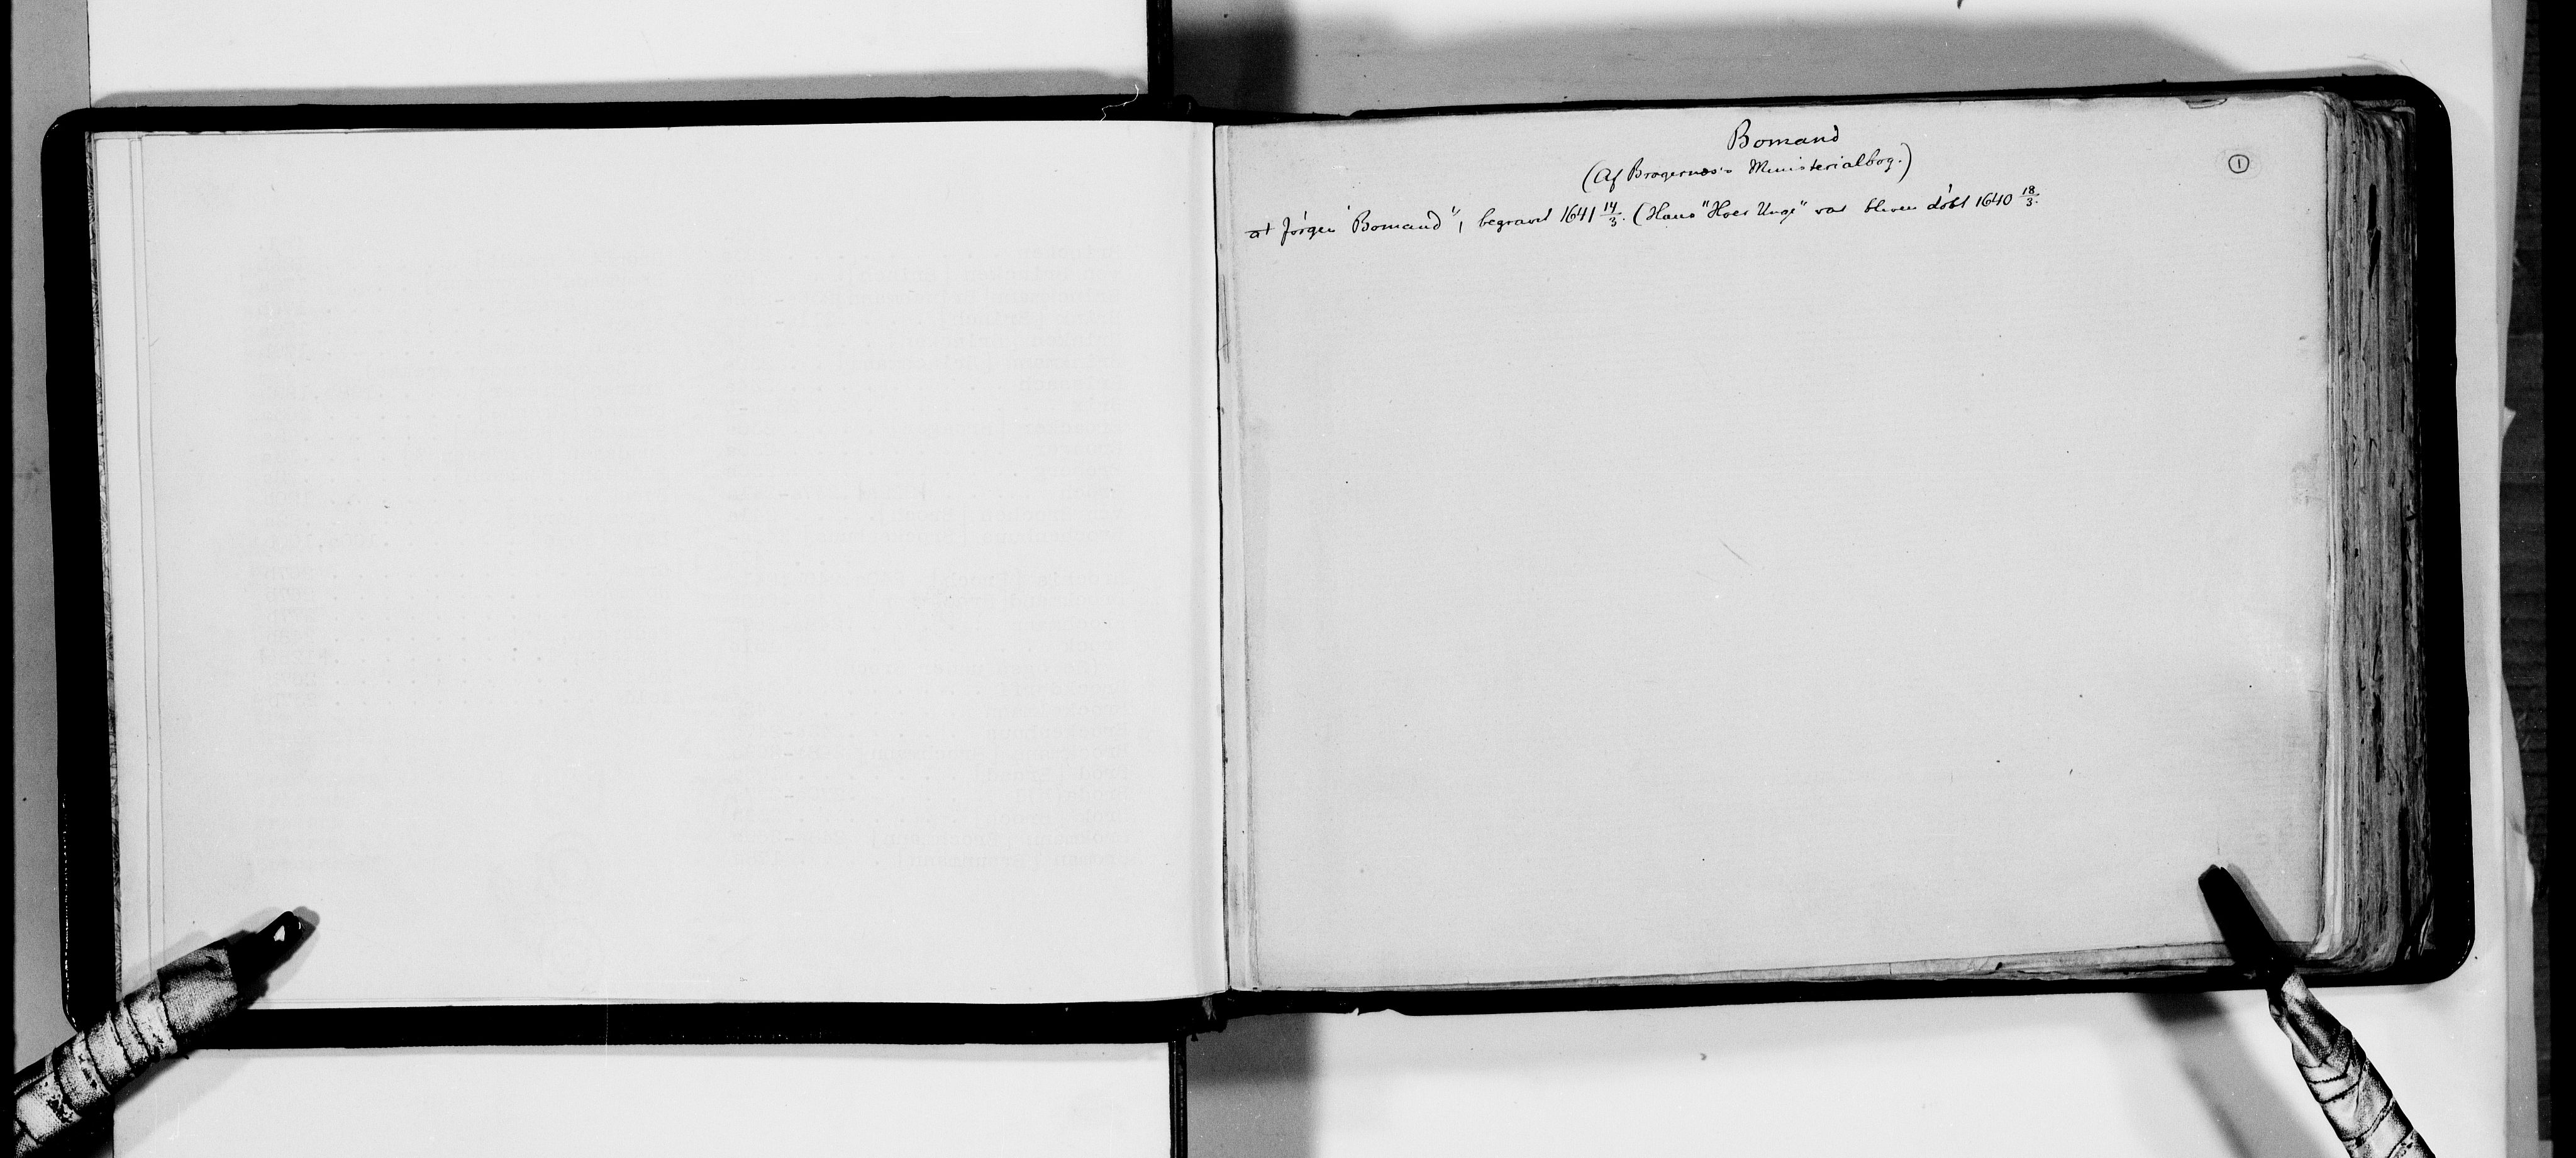 Bomand
(Af Bragernæs's Ministerialbog.)
①
at Jørgen "Bomand", begravet 1641 14/3. (Hans "Hoer Unge" var bleven døbt 1640 18/3.